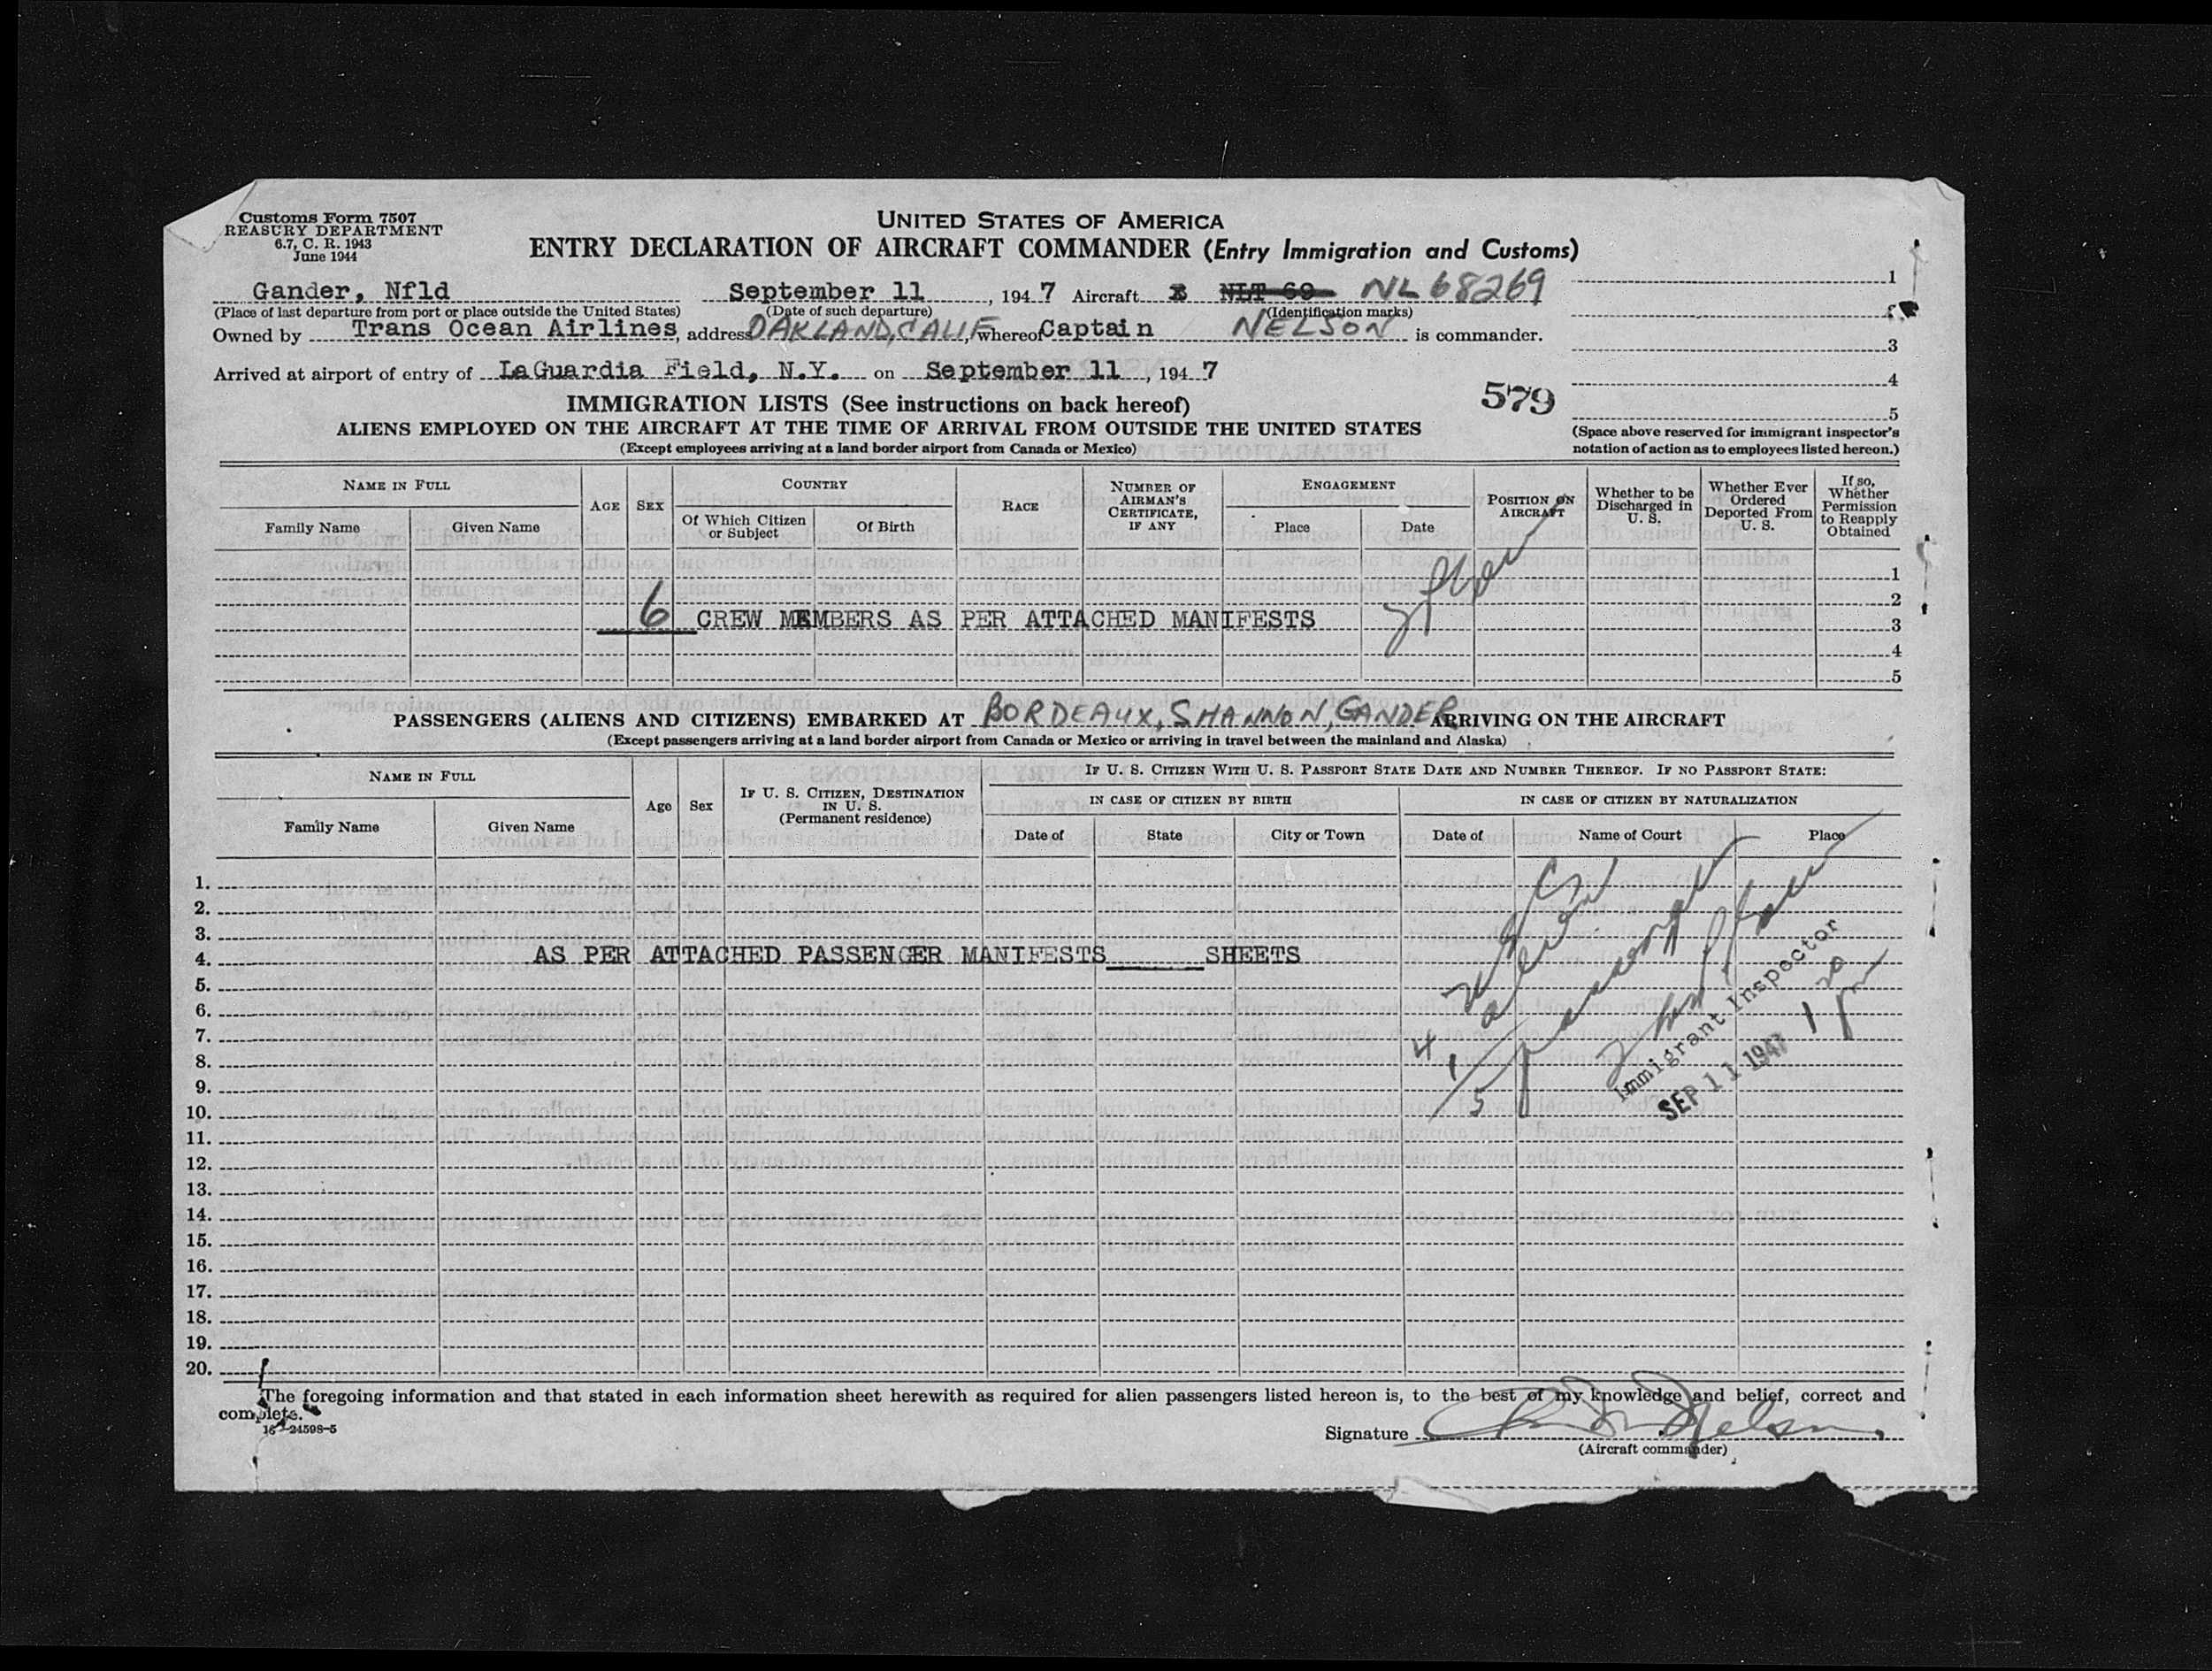 Customs Form 7507
REASURY DEPARTMENT
6.7, C. R. 1943
June 1944
UNITED STATES OF AMERICA
ENTRY DECLARATION OF AIRCRAFT COMMANDER (Entry Immigration and Customs)
Gander, Nfld September 11, 1947 Aircraft NL 68269 1
(Place of last departure from port or place outside the United States) (Date of such departure) (Identification marks)
Owned by Trans Ocean Airlines, address OAKLAND, CALIF, whereof Captain NELSON is commander.
3
Arrived at airport of entry of LaGuardia Field, N.Y. on September 11, 1947
4
579
5
IMMIGRATION LISTS (See instructions on back hereof)
ALIENS EMPLOYED ON THE AIRCRAFT AT THE TIME OF ARRIVAL FROM OUTSIDE THE UNITED STATES
(Except employees arriving at a land border airport from Canada or Mexico)
(Space above reserved for immigrant inspector's
notation of action as to employees listed hereon.)
NAME IN FULL
Family Name Given Name
AGE SEX
COUNTRY
Of Which Citizen or Subject
Of Birth
RACE
NUMBER OF AIRMAN'S CERTIFICATE, IF ANY
ENGAGEMENT
Place Date
POSITION ON AIRCRAFT
Whether to be Discharged in U. S.
Whether Ever Ordered Deported From U. S.
If so, Whether Permission to Reapply Obtained
1
2
6 CREW MEMBERS AS PER ATTACHED MANIFESTS 3
4
5
PASSENGERS (ALIENS AND CITIZENS) EMBARKED AT BORDEAUX, SHANNON, GANDER ARRIVING ON THE AIRCRAFT
(Except passengers arriving at a land border airport from Canada or Mexico or arriving in travel between the mainland and Alaska)
NAME IN FULL
Family Name Given Name
Age Sex
IF U. S. CITIZEN, DESTINATION IN U. S.
(Permanent residence)
IF U. S. CITIZEN WITH U. S. PASSPORT STATE DATE AND NUMBER THEREOF. IF NO PASSPORT STATE:
IN CASE OF CITIZEN BY BIRTH IN CASE OF CITIZEN BY NATURALIZATION
Date of State City or Town Date of Name of Court Place
1.
2.
3.
4. AS PER ATTACHED PASSENGER MANIFESTS SHEETS
5.
6.
7.
8.
9.
10.
11.
12.
13.
14.
15.
16.
17.
18.
19.
20.
4 USC
1 alien
5 passengers
Immigrant Inspector
SEP 11 1947
1 20 pm
The foregoing information and that stated in each information sheet herewith as required for alien passengers listed hereon is, to the best of my knowledge and belief, correct and
complete.
16-24598-5
Signature Nelson
(Aircraft commander)